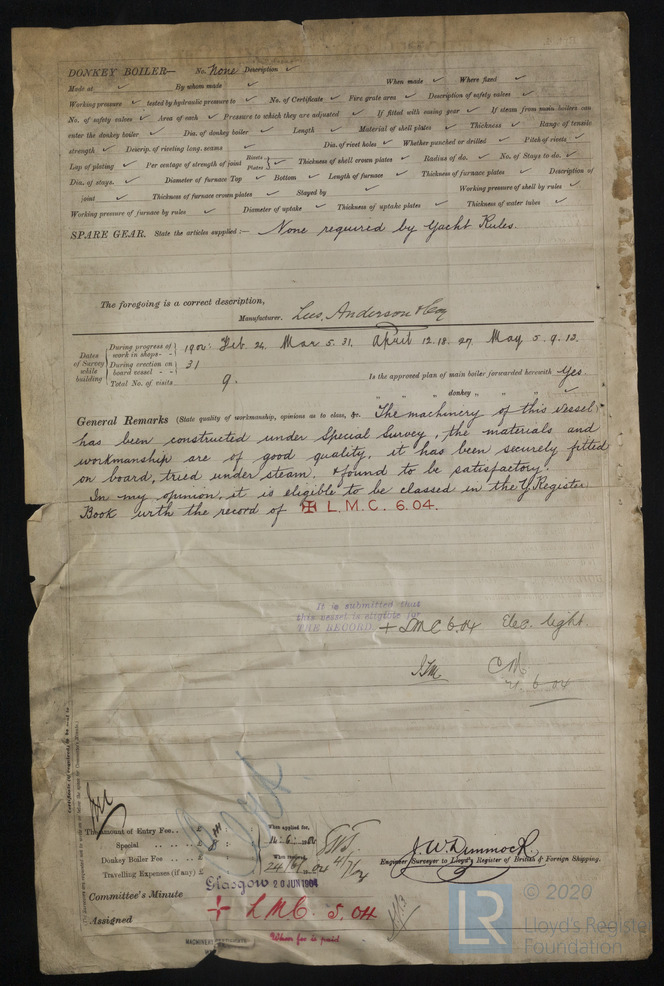 DONKEY BOILER— No. None Description ✓
Made at ✓ By whom made ✓ When made ✓ Where fixed ✓
Working pressure ✓ tested by hydraulic pressure to ✓ No. of Certificate ✓ Fire grate area ✓ Description of safety valves ✓
No. of safety valves ✓ Area of each ✓ Pressure to which they are adjusted ✓ If fitted with easing gear ✓ If steam from main boilers can
enter the donkey boiler ✓ Dia. of donkey boiler ✓ Length ✓ Material of shell plates ✓ Thickness ✓ Range of tensile
strength ✓ Descrip. of riveting long. seams ✓ Dia. of rivet holes ✓ Whether punched or drilled ✓ Pitch of rivets ✓
Lap of plating ✓ Per centage of strength of joint Rivets Plates ✓ Thickness of shell crown plates ✓ Radius of do. ✓ No. of Stays to do. ✓
Dia. of stays. ✓ Diameter of furnace Top ✓ Bottom ✓ Length of furnace ✓ Thickness of furnace plates ✓ Description of
joint ✓ Thickness of furnace crown plates ✓ Stayed by ✓ Working pressure of shell by rules ✓
Working pressure of furnace by rules ✓ Diameter of uptake ✓ Thickness of uptake plates ✓ Thickness of water tubes ✓
SPARE GEAR. State the articles supplied:— None required by Yacht Rules.
The foregoing is a correct description,
Manufacturer. Lees, Anderson & Coy
Dates of Survey while building
During progress of work in shops - - 1904: Feb 24. Mar 5. 31. April 12. 18. 27. May 5. 9. 13.
During erection on board vessel - - 31
Total No. of visits 9. Is the approved plan of main boiler forwarded herewith Yes
" " " donkey " " " ✓
General Remarks (State quality of workmanship, opinions as to class, &c. The machinery of this vessel
has been constructed under Special Survey, the materials and
workmanship are of good quality, it has been securely fitted
on board, tried under steam. & found to be satisfactory.
In my opinion, it is eligible to be classed in the Y. Register
Book with the record of ✠ L.M.C. 6.04.
It is submitted that
this vessel is eligible for
THE RECORD + LMC 6.04 Elec. light.
The amount of Entry Fee
Special
Donkey Boiler Fee
Travelling Expenses (if any) £
When applied for,
When received,
J. W. Dimmock.
Engineer Surveyor to Lloyd's Register of British & Foreign Shipping.
Glasgow 20 JUN 1904
Committee's Minute
Assigned + LMC. 5. 04
When fee is paid
LR
© 2020
Lloyd's Register
Foundation